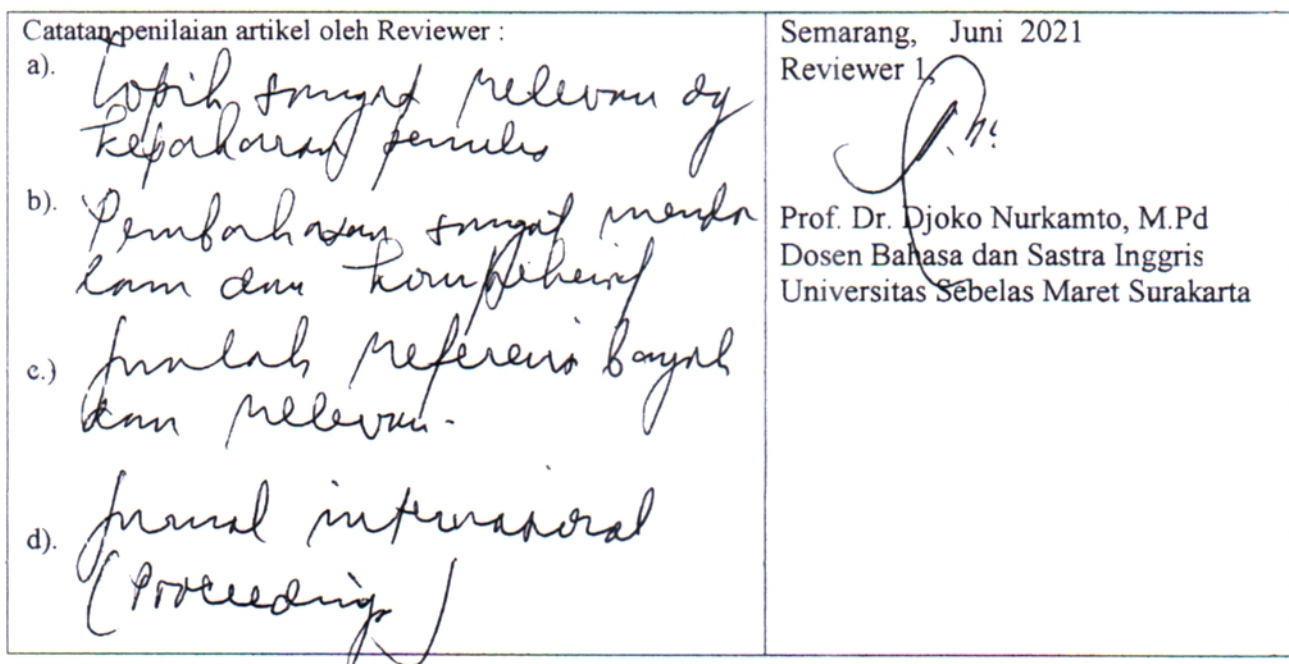 Catatan penilaian artikel oleh Reviewer :
a). Topik sangat relevan dg
kepakaran penulis
b). Pembahasan sangat menda
lam dan komprehensif
c.) Jumlah referensi banyak
dan relevan.
d). Jurnal internasional
(Proceeding)
Semarang, Juni 2021
Reviewer 1,
Prof. Dr. Djoko Nurkamto, M.Pd
Dosen Bahasa dan Sastra Inggris
Universitas Sebelas Maret Surakarta